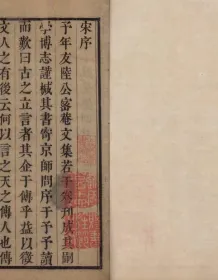 宋序
予年友陸公密菴文集若干卷刊成其嗣
學博志謹緘其書寄京師問序于予予讀
而歎曰古之立言者其企于傳乎益以徵
文人之有後云何以言之天之傳人也傳